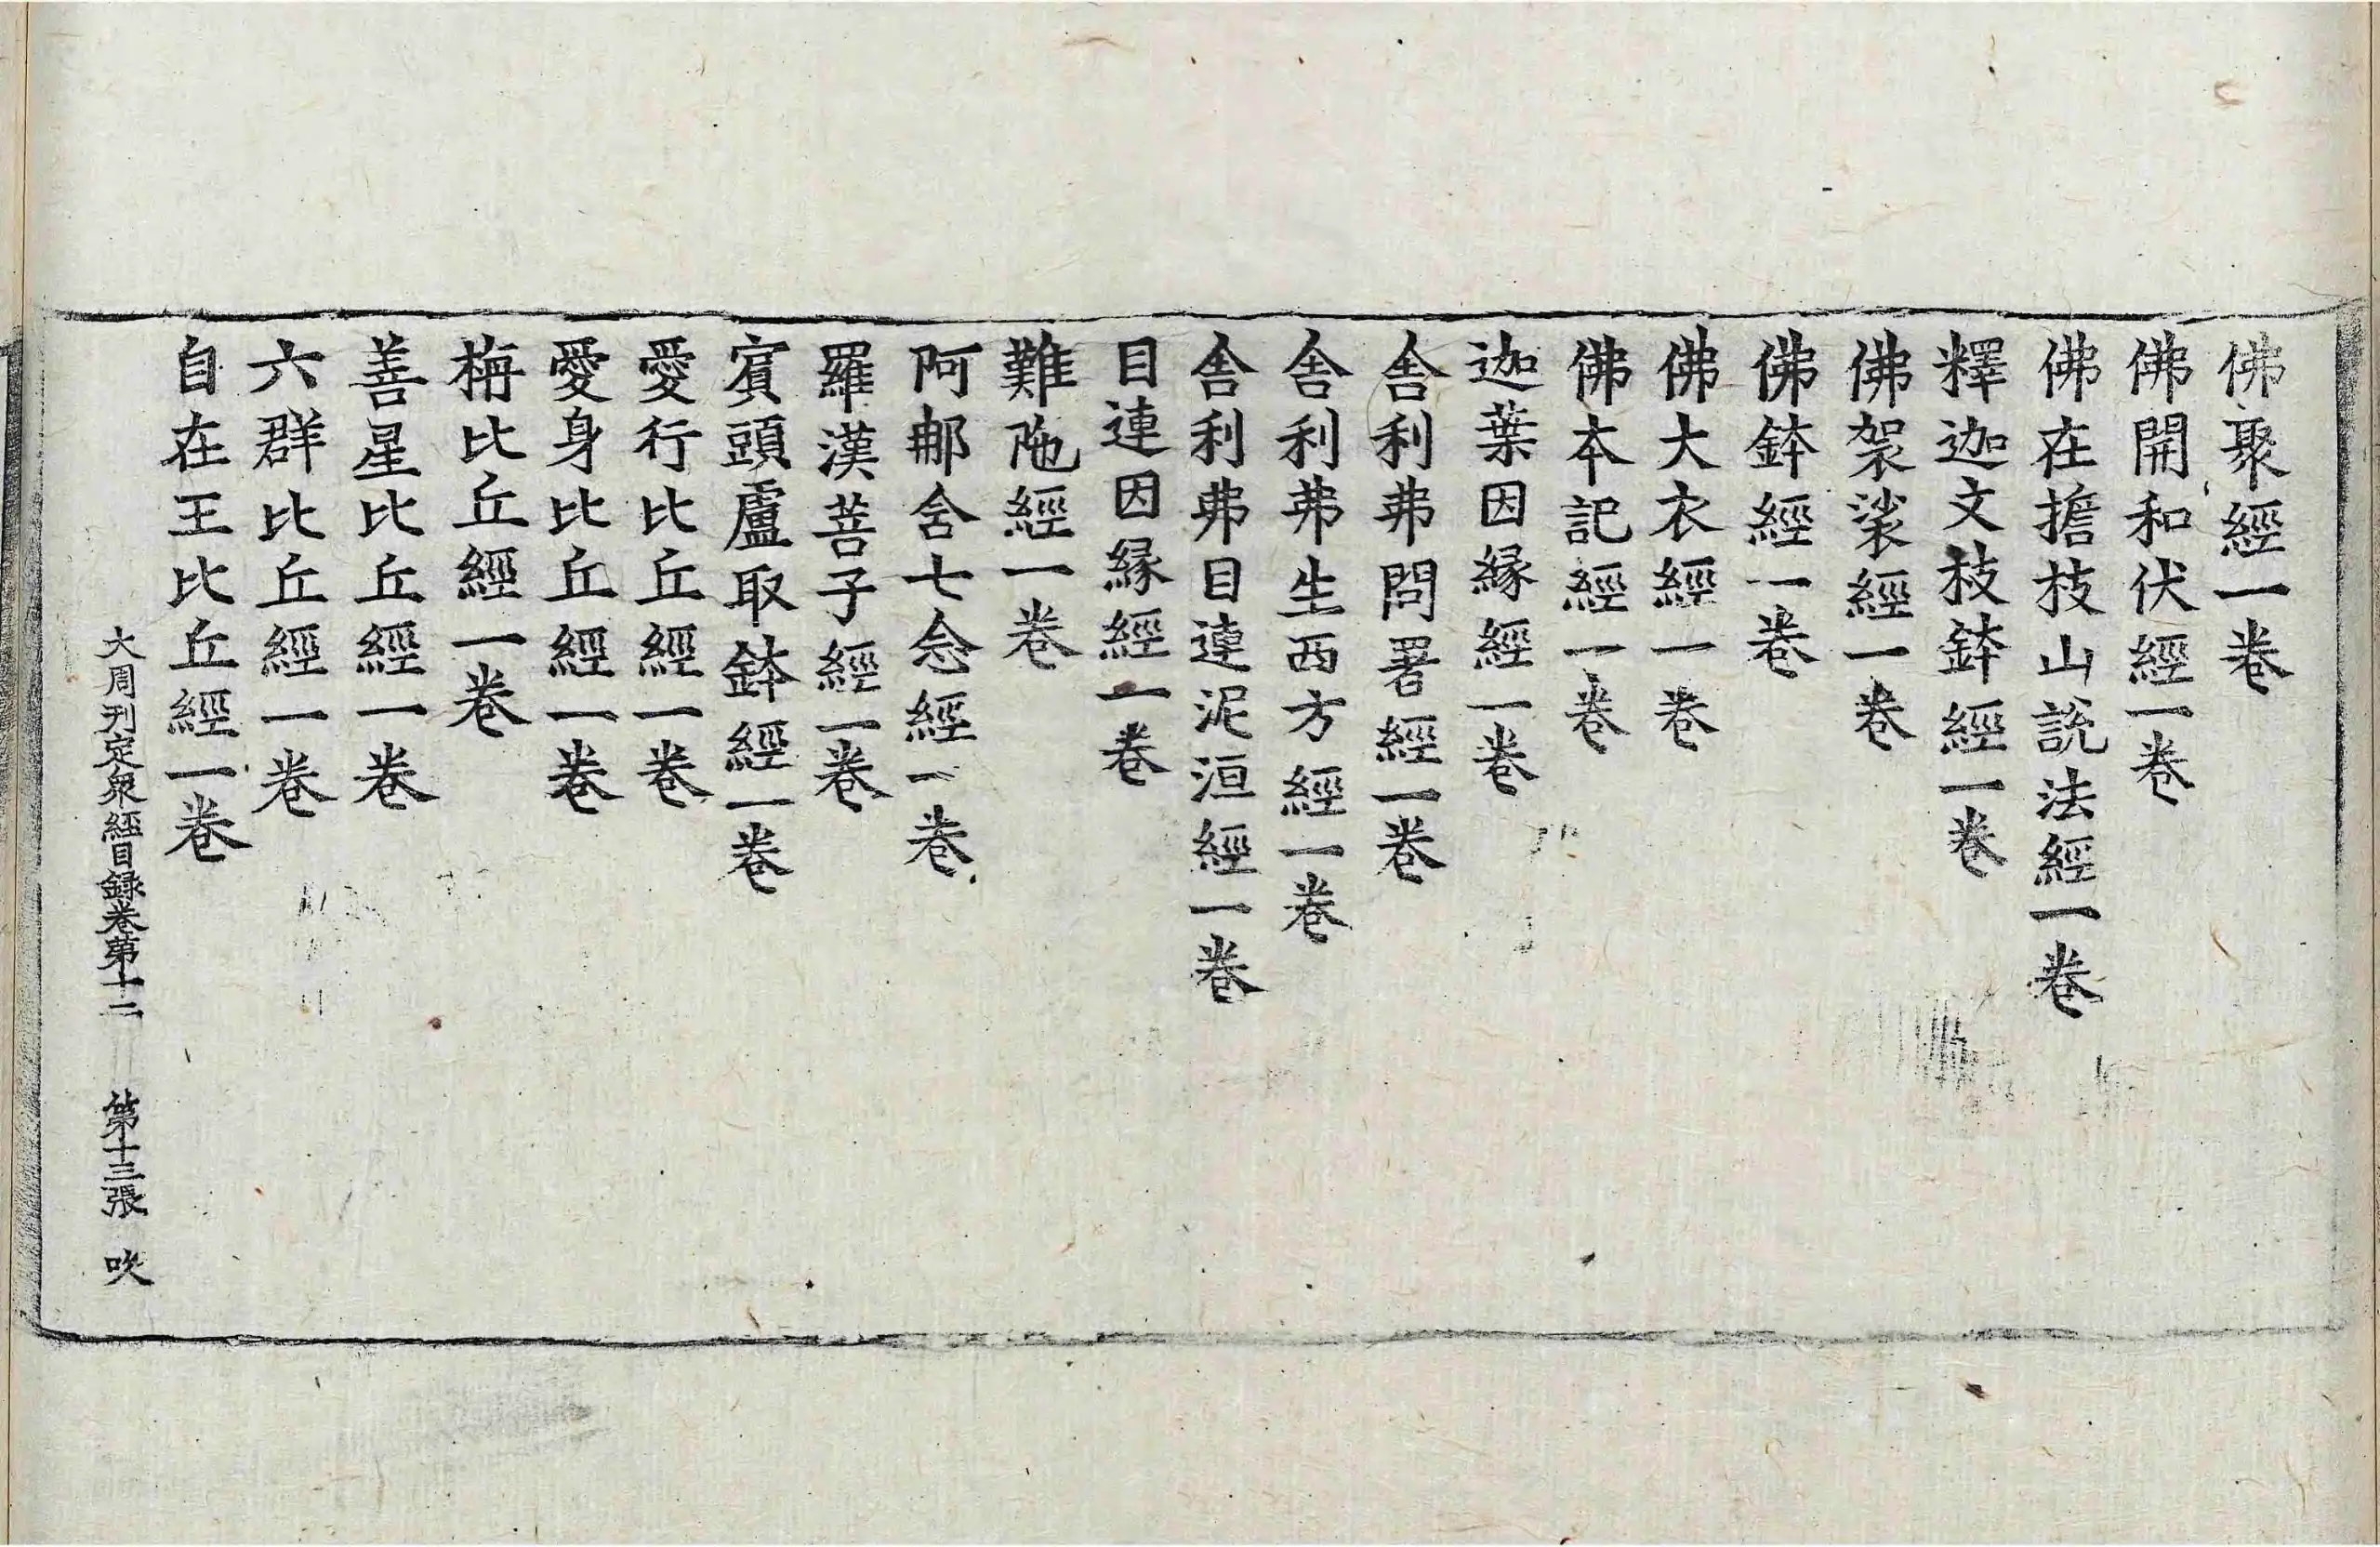 佛聚經一卷
佛開和伏經一卷
佛在擔枝山說法經一卷
釋迦文枝鉢經一卷
佛袈裟經一卷
佛鉢經一卷
佛大衣經一卷
佛本記經一卷
迦葉因縁經一卷
舎利弗問署經一卷
舎利弗生西方經一卷
舎利弗目連泥洹經一卷
目連因縁經一卷
難陁經一卷
阿那含七念經一卷
羅漢菩子經一卷
賔頭盧取鉢經一卷
愛行比丘經一卷
愛身比丘經一卷
栴比丘經一卷
善星比丘經一卷
六群比丘經一卷
自在王比丘經一卷
大周刊定衆經目録卷第十二 第十三張 吹